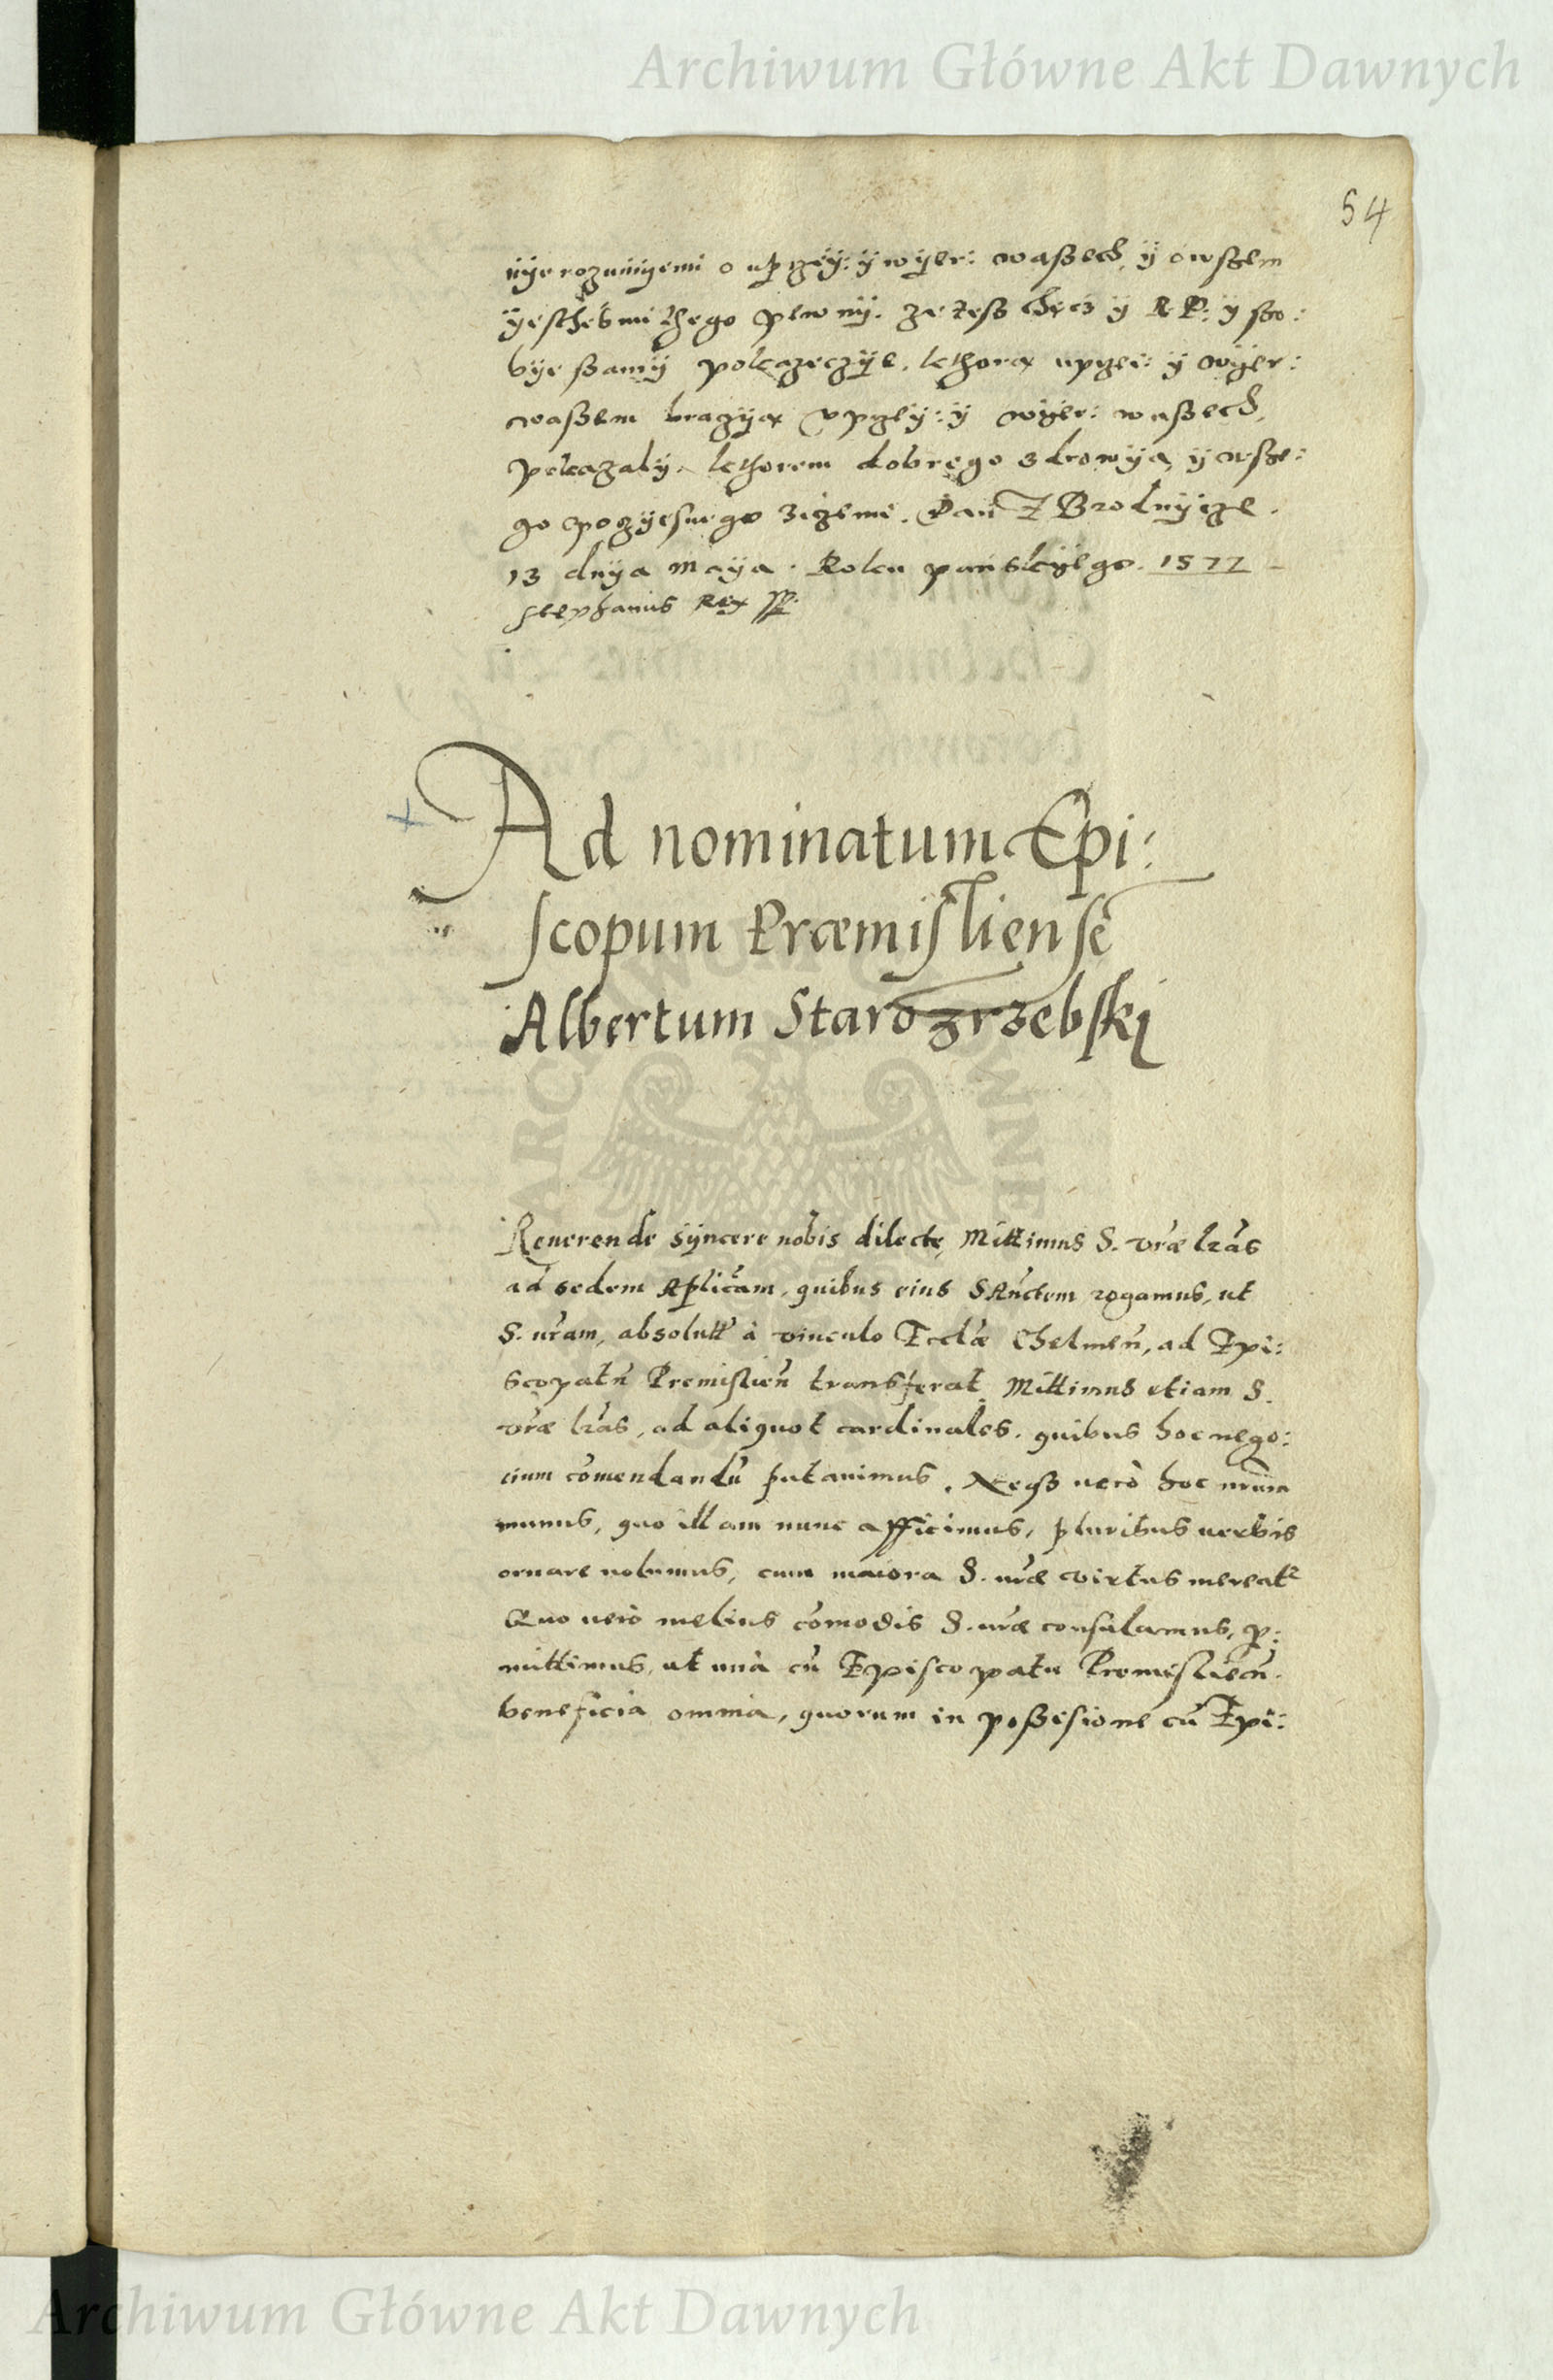 Archiwum Główne Akt Dawnych
54
nÿe rozumÿemi o uprzeÿ: ÿ wÿer: waßech, ÿ owszem
ÿesthesmi thego pewnÿ. ze teß chęcz ÿ R.P: ÿ so:
bÿe ßamÿ pokazeczÿe. kthorą uprzei: ÿ wÿer:
waßem bracÿą uprzeÿ: ÿ wÿer: waßech,
pokazalÿ. kthorem dobrego zdrowÿa ÿ wsze:
go poczÿesnego ziczemi. Dan Z Brodnÿcze.
13 dnÿa Maÿa. Roku panskÿego. 1577
Stephanus Rex
Ad nominatum Epi:
scopum Præmisliensẽ
Albertum Starozrzebskj
Reuerende sÿncere nobis dilecte, Mittimus S. vrã̃e lrãs
ad sedem Aplicam, quibus eius Sanctem rogamus, ut
S. uram, absolutt à vinculo Eccłæ Chelmeñ, ad Epi:
scopatũ Premislieñ transferat. Mittimus etiam S.
vræ lrãs, ad aliquot cardinales. quibus hoc nego:
cium cõmendandũ putauimus. Neqȝ uerò hoc nrum
munus, quo illam nunc afficimus, pluribus uerbis
ornare uolumus, cum maiora S. uræ virtus mereatr
Quo uerò melius cõmodis S. uræ consulamus, p:
mittimus, ut unà cũ Episcopatu Premislieñ.
beneficia omnia, quorum in poßesione cũ Epi:
ARCHIWUM GŁÓWNE
Archiwum Główne Akt Dawnych